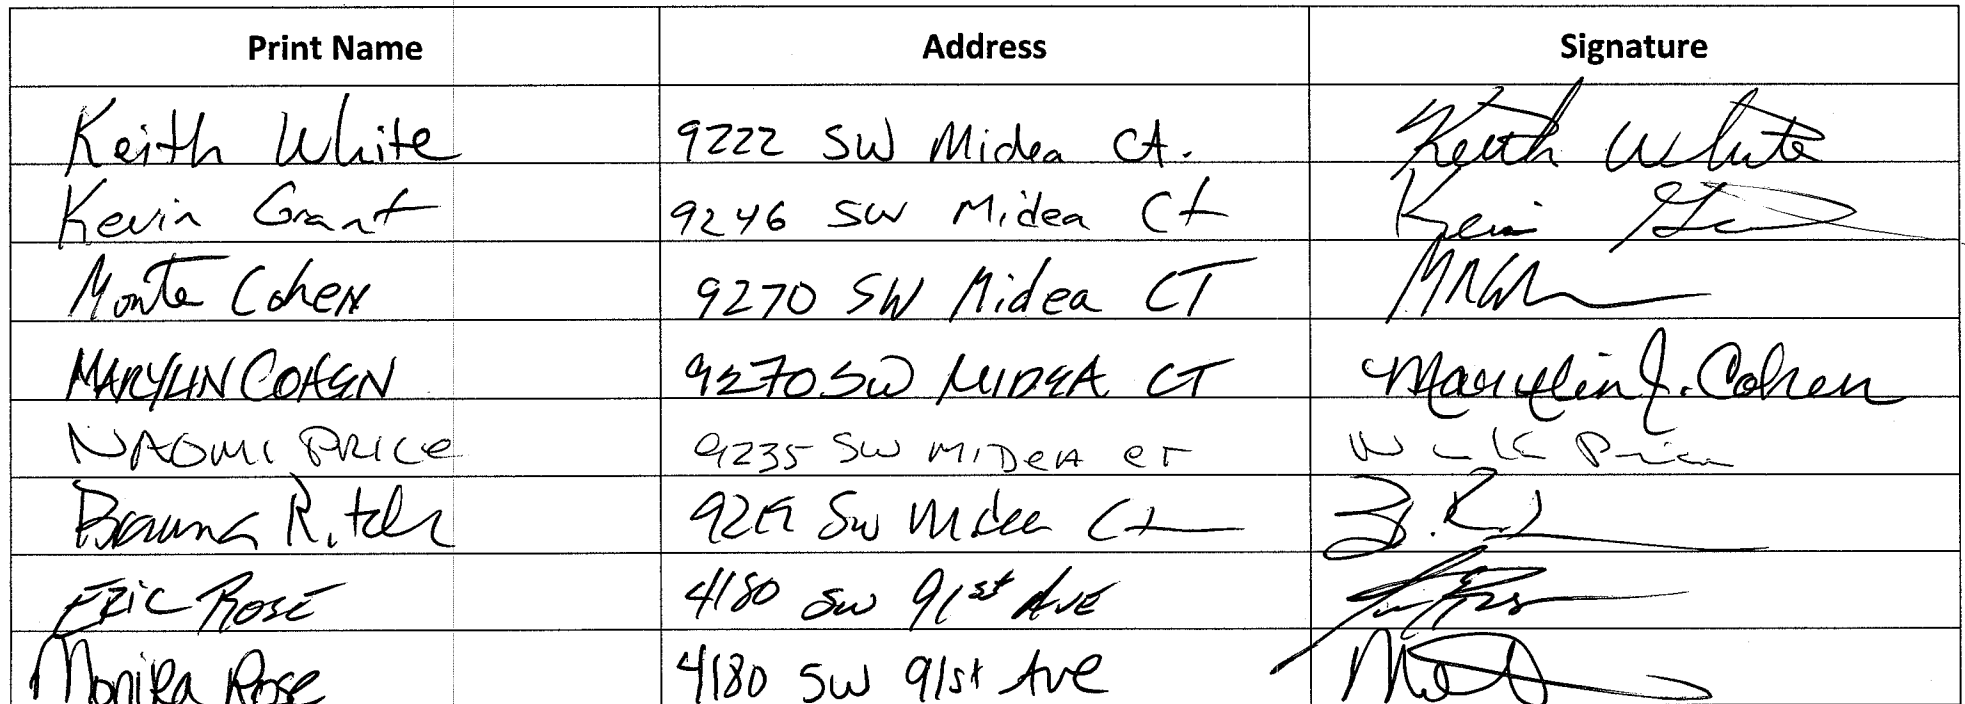 Print Name Address Signature
Keith White 9222 SW Midea Ct. Keith White
Kevin Grant 9246 SW Midea Ct Kevin
Monte Cohen 9270 SW Midea CT
MARYLIN COHEN 9270 SW MIDEA CT Marylin J. Cohen
NAOMI PRICE 9235 SW MIDEA CT Price
SW Midea Ct
ERIC ROSE 4180 SW 91st AVE
Monika Rose 4180 SW 91st Ave